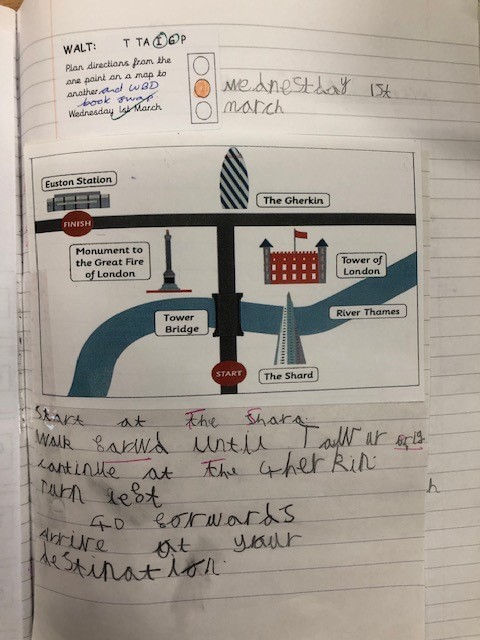 WALT: T TA I G P
Plan directions from the
one point on a map to
another and WBD
book swap
Wednesday 1st March
Wednestday 1st
march
Euston Station
The Gherkin
FINISH
Monument to
the Great Fire
of London
Tower of
London
River Thames
Tower
Bridge
START
The Shard
Start at the Shard.
Walk forwd until
continue at the Gherkin.
turn left
Go forwards
Arrive at your
destination.
h